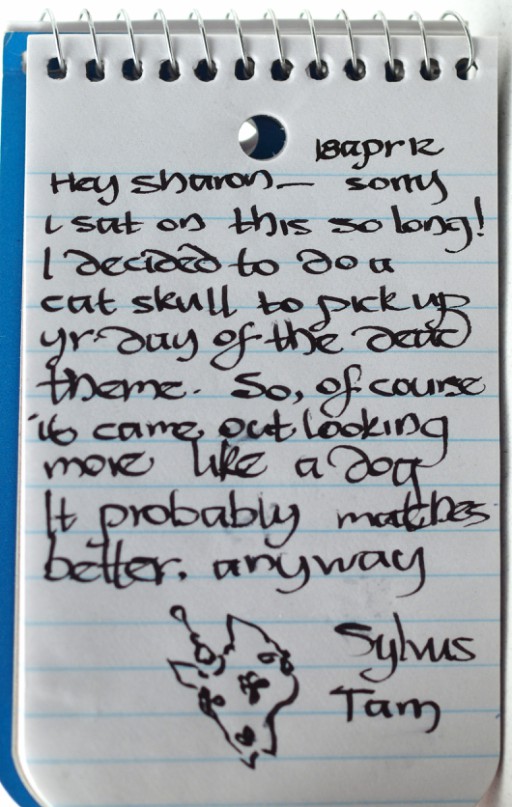 18apr12
Hey sharon— sorry
i sat on this so long!
I decided to do a
cat skull to pick up
yr day of the dead
theme. So, of course
it came out looking
more like a dog
It probably matches
better. anyway
Sylvus
Tam